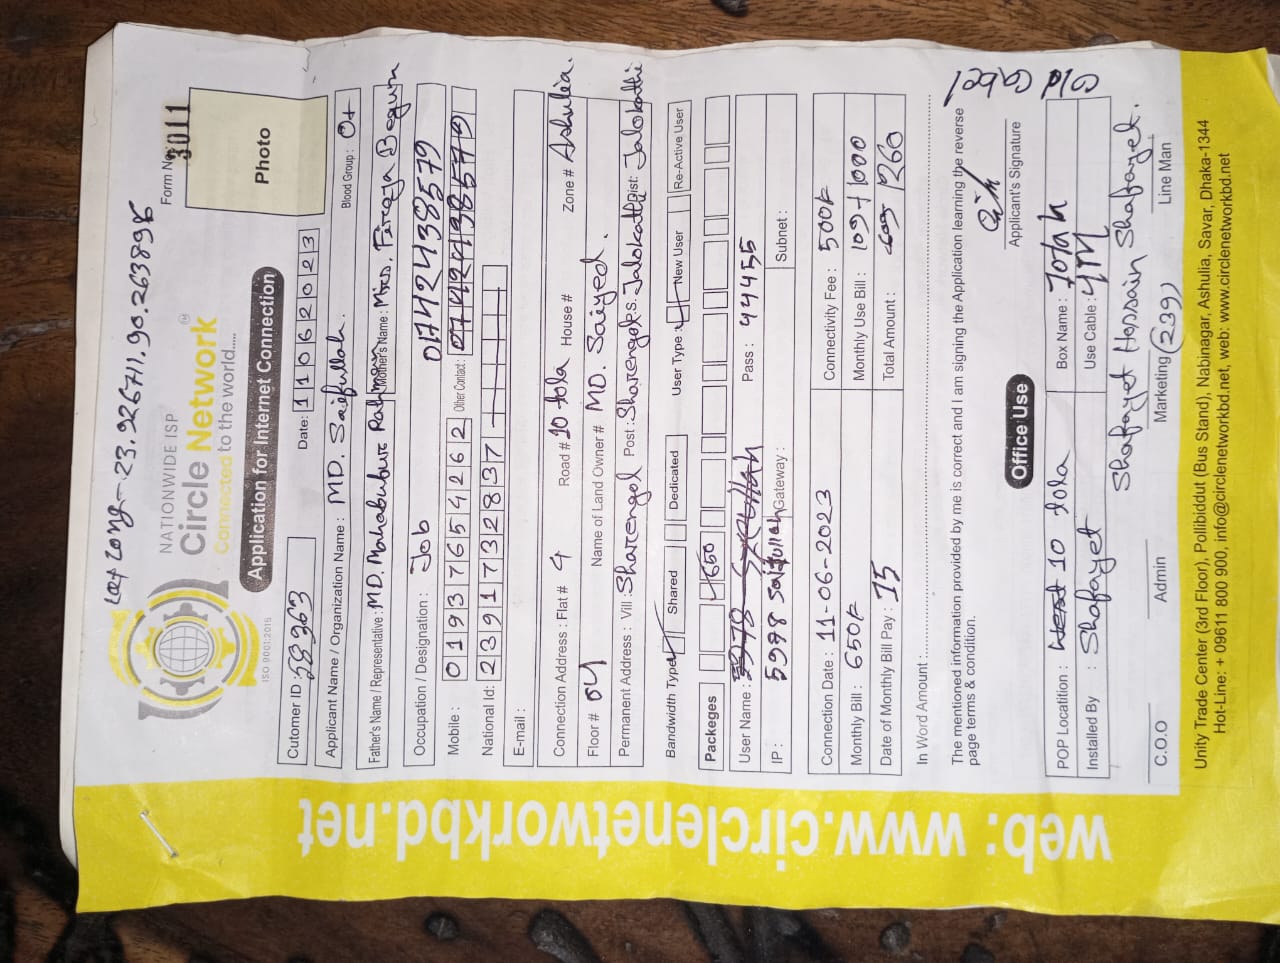 Lat Long-23.926711.90.263898
Form No: 3011
NATIONWIDE ISP
Circle Network
Connected to the world.....
ISO 9001:2015
Application for Internet Connection
Photo
Cutomer ID: 58363
Date: 11062023
Applicant Name / Organization Name : MD. Saifullah.
Blood Group : O+
Father's Name / Representative : MD. Mahabubur Rahman Mother's Name : Mrs. Feroja Begum
Occupation / Designation : Job 01742438579
Mobile : 01937654262 Other Contact : 01742438579
National Id: 2391732837
E-mail :
Connection Address : Flat # 4 Road # 10 tola House # Zone # Ashulia.
Floor # 04 Name of Land Owner # MD. Saiyed.
Permanent Address : Vill : Sharengol Post : Sharengol P.S: Jalokathi Dist: Jalokathi
Bandwidth Type : Shared Dedicated User Type : New User Re-Active User
Packeges 650
User Name : Pass : 44455
IP : 5998 saifullah Gateway : Subnet :
Connection Date : 11-06-2023 Connectivity Fee : 500/-
Monthly Bill : 650/- Monthly Use Bill : 1000
Date of Monthly Bill Pay : 15 Total Amount : 1260
In Word Amount :
The mentioned information provided by me is correct and I am signing the Application learning the reverse
page terms & condition.
Applicant's Signature
Office Use
POP Locatition : West 10 tola Box Name : 7otah
Installed By : Shafayet Use Cable : 4M
Shafayet Hossain Shafayet.
(239)
C.O.O Admin Marketing Line Man
Unity Trade Center (3rd Floor), Pollibiddut (Bus Stand), Nabinagar, Ashulia, Savar, Dhaka-1344
Hot-Line: + 09611 800 900, info@circlenetworkbd.net, web: www.circlenetworkbd.net
web: www.circlenetworkbd.net